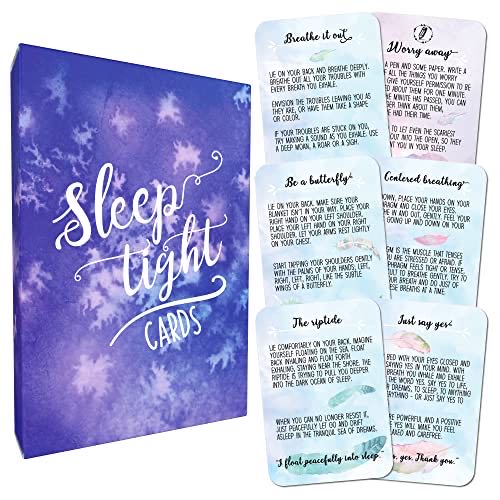 Sleep
tight
CARDS
Breathe it out
LIE ON YOUR BACK AND BREATHE DEEPLY.
BREATHE OUT ALL YOUR TROUBLES WITH
EVERY BREATH YOU EXHALE.
ENVISION THE TROUBLES LEAVING YOU AS
THEY ARE, OR HAVE THEM TAKE A SHAPE
OR COLOR.
IF YOUR TROUBLES ARE STUCK ON YOU,
TRY MAKING A SOUND AS YOU EXHALE. USE
A DEEP MOAN, A ROAR OR A SIGH.
Worry away
A PEN AND SOME PAPER. WRITE
ALL THE THINGS YOU WORRY
GIVE YOURSELF PERMISSION TO BE
ED ABOUT THEM FOR ONE MINUTE.
E MINUTE HAS PASSED, YOU CAN
NGER THINK ABOUT THEM,
HAD THEIR TIME.
TO LET EVEN THE SCARIEST
OUT INTO THE OPEN, SO THEY
NT YOU IN YOUR SLEEP.
Be a butterfly
LIE ON YOUR BACK. MAKE SURE YOUR
BLANKET ISN'T IN YOUR WAY. PLACE YOUR
RIGHT HAND ON YOUR LEFT SHOULDER.
PLACE YOUR LEFT HAND ON YOUR RIGHT
SHOULDER. LET YOUR ARMS REST LIGHTLY
ON YOUR CHEST.
START TAPPING YOUR SHOULDERS GENTLY
WITH THE PALMS OF YOUR HANDS, LEFT,
RIGHT, LEFT, RIGHT, LIKE THE SUBTLE
WINGS OF A BUTTERFLY.
Centered breathing
OWN, PLACE YOUR HANDS ON YOUR
RAGM AND CLOSE YOUR EYES.
HE IN AND OUT, GENTLY. FEEL YOUR
GOING UP AND DOWN ON YOUR
GM IS THE MUSCLE THAT TENSES
OU ARE STRESSED OR AFRAID. IF
PHRAGM FEELS TIGHT OR TENSE,
ICULT TO BREATHE GENTLY, TRY TO
OUR BREATH AND DO JUST OF
ESE BREATHS AT A TIME.
The riptide
LIE COMFORTABLY ON YOUR BACK. IMAGINE
YOURSELF FLOATING ON THE SEA. FLOAT
BACK INHALING AND FLOAT FORTH
EXHALING, STAYING NEAR THE SHORE. THE
RIPTIDE IS TRYING TO PULL YOU DEEPER
INTO THE DARK OCEAN OF SLEEP.
WHEN YOU CAN NO LONGER RESIST IT,
JUST PEACEFULLY LET GO AND DRIFT
ASLEEP IN THE TRANQUIL SEA OF DREAMS.
"I float peacefully into sleep."
Just say yes
BED WITH YOUR EYES CLOSED AND
SAYING YES IN YOUR MIND. WITH
BREATH YOU INHALE AND EXHALE
THE WORD YES. SAY YES TO LIFE,
UR DREAMS, TO SLEEP, TO ANYTHING
ERYTHING - OR JUST SAY YES TO
ARE POWERFUL AND A POSITIVE
YES WILL MAKE YOU FEEL
AXED AND CAREFREE.
yes. Thank you."